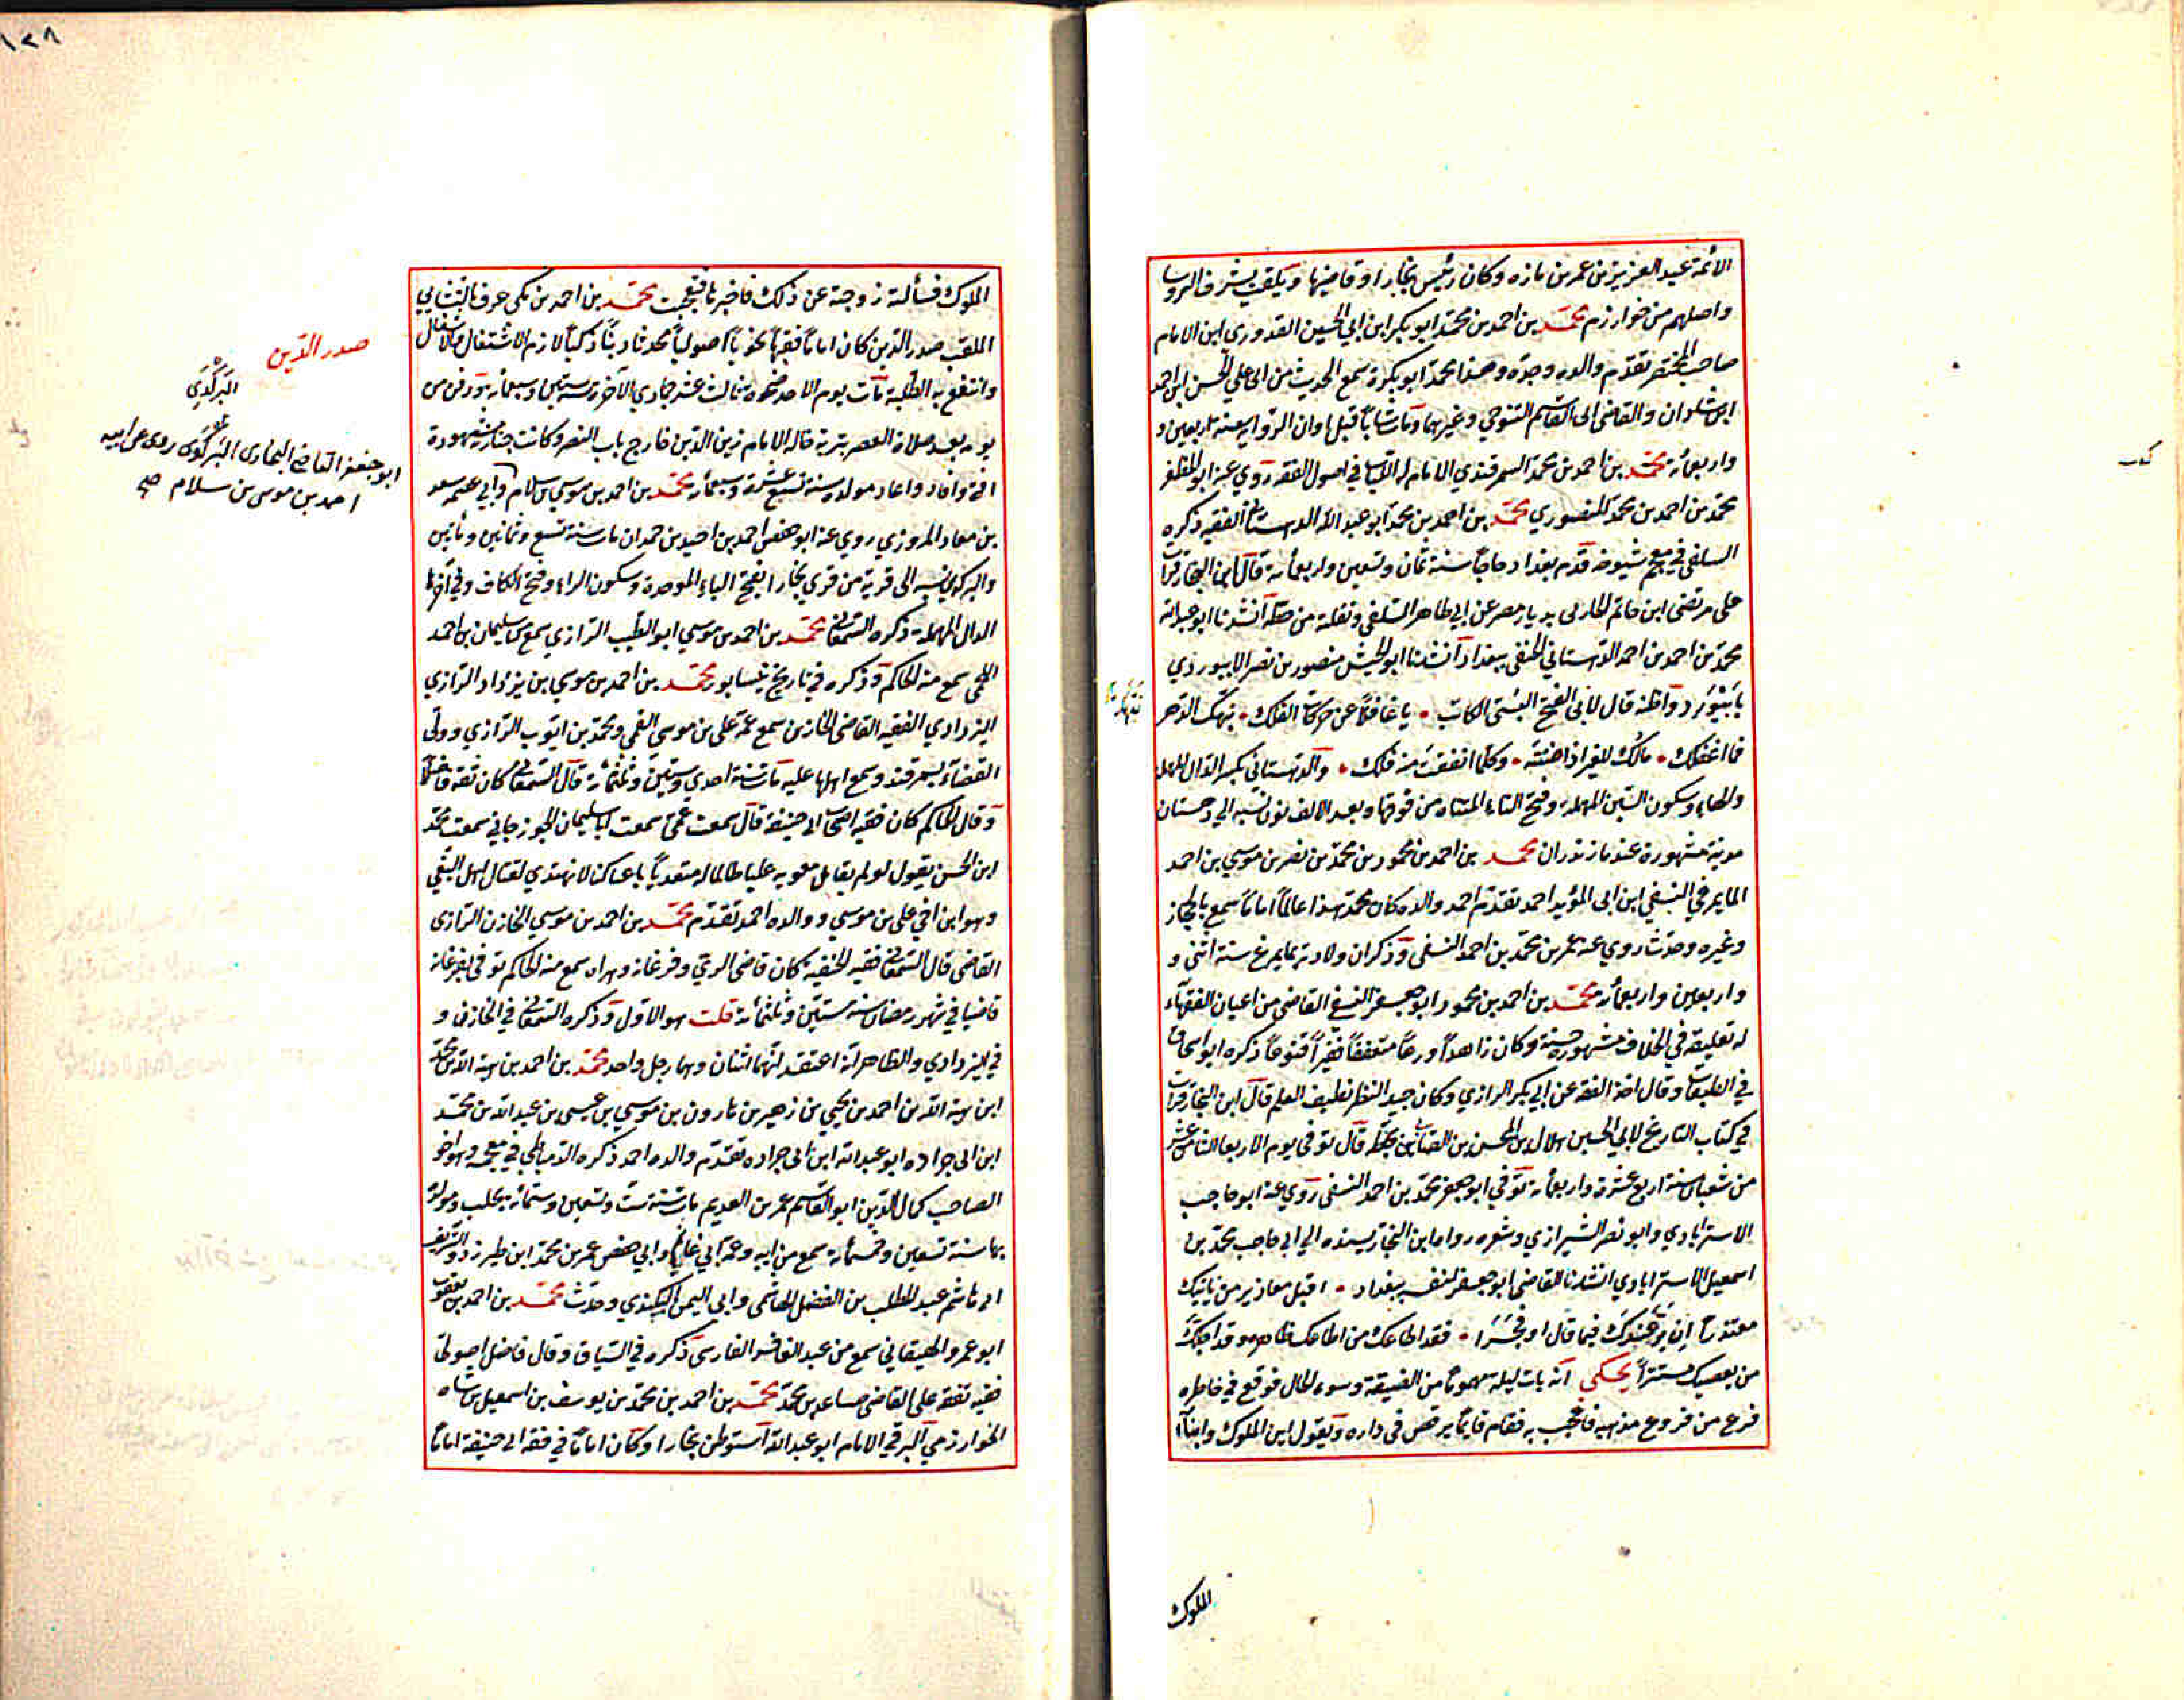 الائمة عبد العزيز بن عمر بن مازه وكان رئيس بخارا وقاضيها ويلقب بشرف الروسا
واصلهم من خوارزم محمد بن احمد بن محمد ابو بكر ابن ابي الحسين القدوري ابن الامام
صاحب المختصر تقدم والده وجده وهذا محمد ابو بكره سمع الحديث من ابي علي الحسن ابن احمد
ابن شاذان والقاضي ابي القاسم التنوخي وغيرهما ومات شابا قبل اوان الرواية سنة اربعين و
واربعمائة محمد بن احمد بن محمد السمرقندي الامام له اللباب في اصول الفقه روي عنه ابو المظفر
محمد بن احمد بن محمد المنصوري محمد بن احمد بن محمد ابو عبد الله الدهستاني الفقيه ذكره
السلفي في معجم شيوخه قدم بغداد حاجا سنة ثمان وتسعين واربعمائة قال ابن النجار قرات
على مرتضى ابن حاتم الحارثي بديار مصر عن ابي طاهر السلفي ونقلته من خطه انشدنا ابو عبد الله
محمد بن احمد بن احمد الدهستاني الحنفي ببغداد انشدنا ابو الجيش منصور بن نصر الابيوردي
بابيورد واظنه قال لابي الفتح البستي الكاتب • يا غافلا عن حركات الفلك • نبهك الدهر
فما اغفلك • مالك للغير اذا صنته • وكلما انفقت منه فلك • والدهستاني بكسر الدال المهملة
والهاء وسكون السين المهملة وفتح التاء المثناه من فوقها وبعد الالف نون نسبه الى دهستان
مدينة مشهورة عند مازندران محمد بن احمد بن محمود بن محمد بن نصر بن موسي بن احمد
المايمرغي النسفي ابن ابي المؤيد احمد تقدم احمد والده كان محمد هذا عالما اماما سمع بالحجاز
وغيره وحدث روي عنه عمر بن محمد بن احمد النسفي وذكر ان ولادته بمايمرغ سنة اثنتي و
واربعين واربعمائة محمد بن احمد بن محمود ابو جعفر النسفي القاضي من اعيان الفقهاء
له تعليقة في الخلاف مشهورة حسنة وكان زاهدا ورعا متعففا فقيرا قنوعا ذكره ابو اسحاق
في الطبقات وقال اخذ الفقه عن ابي بكر الرازي وكان جيد النظر نظيف العلم قال ابن النجار قرات
في كتاب التاريخ لابي الحسين هلال بن المحسن بن الصابئ بخطه قال توفي يوم الاربعا الثامن عشر
من شعبان سنة اربع عشرة واربعمائة توفي ابو جعفر محمد بن احمد النسفي روي عنه ابو حاجب
الاسترابادي وابو نصر الشيرازي وشعره رواه ابن النجار بسنده الى ابي حاجب محمد بن
اسمعيل الاسترابادي انشدنا القاضي ابو جعفر النسفي ببغداد • اقبل معاذير من ياتيك
معتذرا ان بر عندك فيما قال او فجرا • فقد اطاعك من اطاعك ظاهره وقد اجلك
من يعصيك مستترا يحكي انه بات ليله مهموما من الضيقة وسوء الحال فوقع في خاطره
فرع من فروع مذهبه فاعجب به فقام قائما يرقص في داره ويقول اين الملوك وابناء
الملوك
نبهك
الملوك فسألته زوجته عن ذلك فاخبرها فتعجبت محمد بن احمد بن مكي عرف بالنشابي
الملقب صدر الدين كان اماما فقيها نحويا اصوليا محدثا دينا ذكيا لازم الاشتغال والاشغال
وانتفع به الطلبة مات يوم الاحد ضحوه ثالث عشر جمادي الآخر سنة ستين وسبعمائة ودفن من
يومه بعد صلاة العصر بتربة خاله الامام زين الدين خارج باب النصر وكانت جنازته مشهودة
افتي وافاد واعاد مولده سنة تسع عشرة وسبعمائة محمد بن احمد بن موسي بن سلام وابي عصمه سعد
بن معاد المروزي روي عنه ابو حفص احمد بن احيد بن حمدان مات سنة تسع وثمانين ومأتين
والبركدي نسبه الى قرية من قري بخارا بفتح الباء الموحدة وسكون الراء وفتح الكاف وفي آخرها
الدال المهملة ذكره السمعاني محمد بن احمد بن موسي ابو الطيب الرازي سمع من سليمان بن احمد
اللخمي سمع منه الحاكم وذكره في تاريخ نيسابور محمد بن احمد بن موسي بن يزداد الرازي
اليزدادي الفقيه القاضي الخازن سمع عمه علي بن موسى القمي ومحمد بن ايوب الرازي وولى
القضاء بسمرقند وسمع اهلها عليه مات سنة احدي وستين وثلثمائة قال السمعاني كان ثقه فاضلا
وقال الحاكم كان فقيه اصحاب ابي حنيفة قال سمعت عمي سمعت ابا سليمان الجوزجاني سمعت محمد
ابن الحسن يقول لو لم يقاتل معويه عليا ظالما له متعديا باغيا كنا لا نهتدي لقتال اهل البغي
وهو ابن اخي علي بن موسي ووالده احمد تقدم محمد بن احمد بن موسي الخازن الرازي
القاضي قال السمعاني فقيه الحنفيه كان قاضي الري وفرغانه وهراه سمع منه الحاكم توفي بفرغانه
قاضيا في شهر رمضان سنة ستين وثلثمائة قلت هو الاول وذكره السمعاني في الخازن و
في اليزدادي والظاهر انه اعتقد انهما اثنان وهما رجل واحد محمد بن احمد بن هبة الله بن محمد
ابن هبة الله بن احمد بن يحيي بن زهير بن هارون بن موسي بن عيسى بن عبد الله بن محمد
ابن ابي جراده ابو عبد الله ابن ابي جراده تقدم والده احمد ذكره الدمياطي في معجمه وهو اخو
الصاحب كمال الدين ابو القاسم عمر بن العديم مات سنة ست وتسعين وستمائة بحلب ومولده
بها سنة تسعين وخمسمائة سمع من ابيه وعمه ابي غانم وابي حفص عمر بن محمد ابن طبرزد والشريف
ابي هاشم عبد المطلب بن الفضل الهاشمي وابي اليمن الكندي وحدث محمد بن احمد بن يعقوب
ابو عمرو الهيقاني سمع من عبد الغافر الفارسي ذكره في السياق وقال فاضل اصولي
فقيه تفقه على القاضي صاعد بن محمد محمد بن احمد بن محمد بن يوسف بن اسمعيل بن شاه
الخوارزمي البرقي الامام ابو عبد الله استوطن بخارا وكان اماما في فقه ابي حنيفة اماما
صدر الدين
البركدي
ابو جعفر القاضي البخاري البركدي روى عن ابيه
احمد بن موسى بن سلام صح
١٢٨